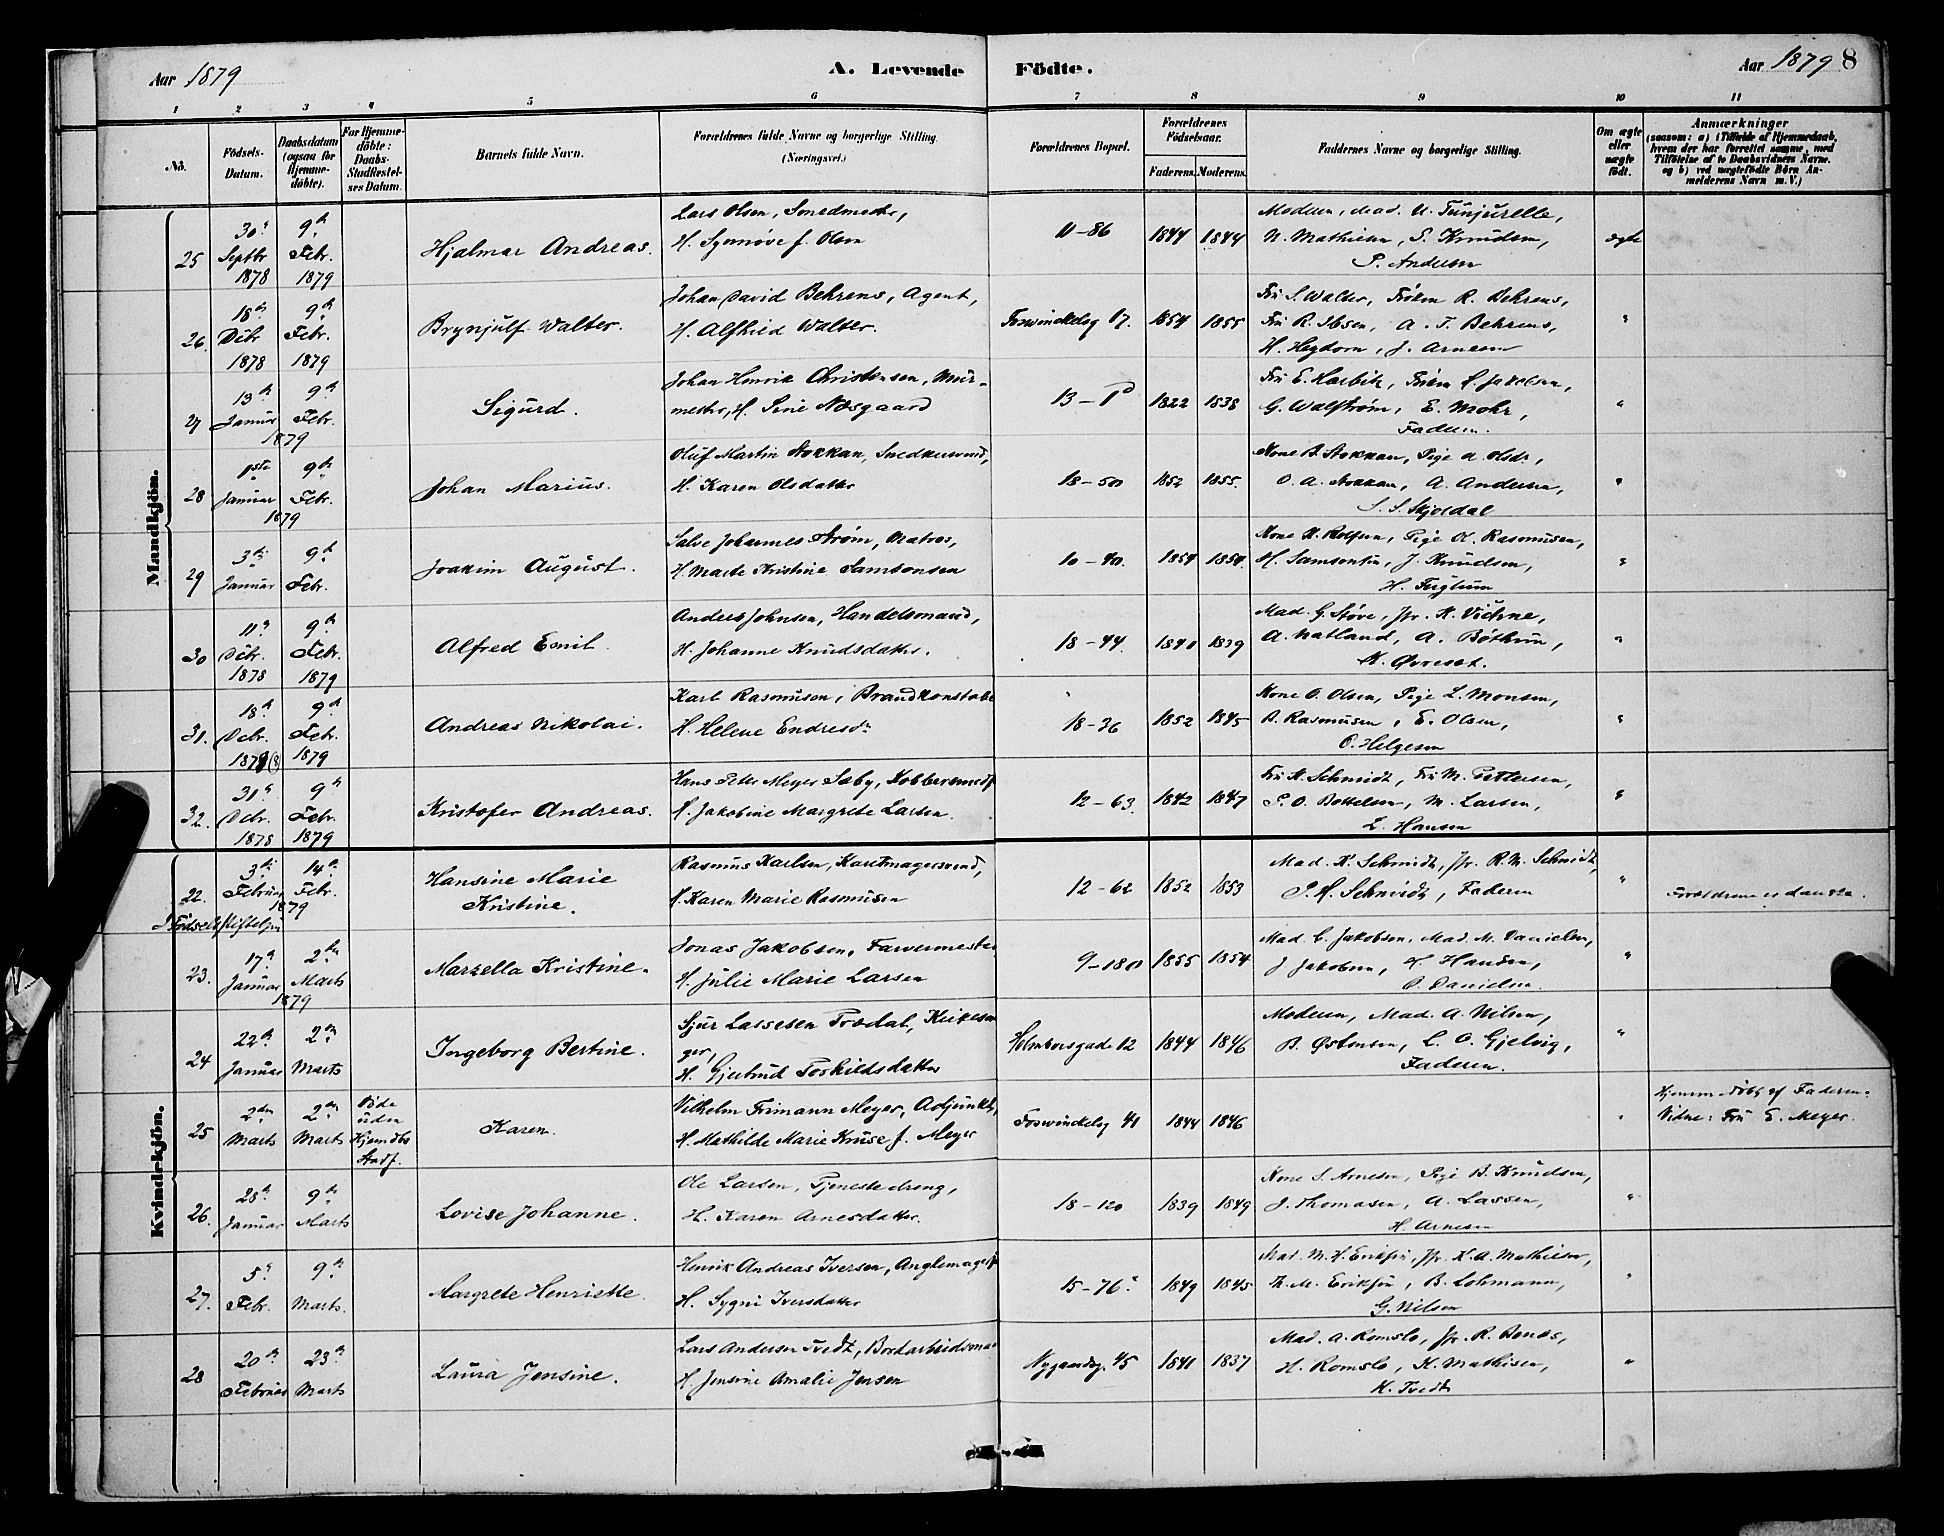 Aar 1879
A. Levende Födte.
Aar 1879 8
1 2 3 4 5 6 7 8 9 10 11
No.
Födsels-Datum.
Daabsdatum (ogsaa for Hjemme-döbte).
For Hjemme-döbte: Daabs-Stadfæstel-ses Datum.
Barnets fulde Navn.
Forældrenes fulde Navne og borgerlige Stilling. (Næringsvei.)
Forældrenes Bopæl.
Forældrenes Födselsaar.
Faderens. Moderens.
Faddernes Navne og borgerlige Stilling.
Om ægte eller uægte födt.
Anmærkninger
(saasom: a) i Tilfælde af Hjemmedaab, hvem der har forrettet samme, med Tilföielse af to Daabsvidners Navne. og b) ved uægtefödte Börn An-melderens Navn m. V.)
Mandkjön.
25 30 Septbr 1878 9 Febr. 1879 Hjalmar Andreas.
Lars Olsen, Smedmester,
H. Synnøve f. Olsen
11-86 1844 1844
Moderen, Mad.
N. Mathiesen, S. Knudsen,
P. Andersen
ægte
26. 18 Dcbr 1878 9 Febr. 1879 Brynjulf Walter.
Johan David Behrens, Agent,
H. Alfhild Walter.
Foswinckelsg 17. 1854 1855
Fru S. Walter, Frøken R. Behrens,
Fru R. Ibsen, A. T. Behrens,
H. Heydorn, J. Arnesen
"
27 13 Januar 9 Febr. 1879 Sigurd.
Johan Henrik Christensen, Mur-
mester, H. Sine Næsgaard
1822 1838
G. Walstrøm, E. Mohr,
Faderen.
"
28 1ste Januar 9 Febr. 1879 Johan Marius.
Oluf Martin Stokkan, Snedkersvend,
H. Karen Olsdatter
18-50 1852 1855.
Kone B. Stokkan, Pige A. Olsdr.,
O. A. Stokkan, A. Andersen,
S. S. Skjoldal
"
29 3 Januar 9 Febr. Joakim August.
Salve Johannes Strøm, Matros,
H. Marte Kristine Samsonsen
10-40. 1854 1854.
Kone K. Rolfsen, Pige O. Rasmusen,
H. Samsonsen, J. Knudsen,
"
30 11 Dcbr. 1878 9 Febr. 1879 Alfred Emil.
Anders Johnsen, Handelsmand,
H. Johanne Knudsdatter.
18-44. 1840 1839
Mad. G. Støve, Jfr. K. Vikne,
A. Natland, A. Bøthun,
"
31. 18 Dcbr. 1879(8) 9 Febr. 1879 Andreas Nikolai.
Karl Rasmusen, Brandkonstabel
H. Helene Endresdr
18-36 1852 1845
Kone O. Olsen, Pige L. Monsen,
B. Rasmusen, E. Olsen,
O. Helgesen
"
32. 31 Dcbr. 1878 9 Febr. 1879 Kristofer Andreas.
Hans Peter Meyer Sæby, Kobbersmedsv
H. Jakobine Margrete Larsen.
12-63. 1842 1847
Fru K. Schmidt, Fru M.
P. O. Bottelsen, M. Larsen,
L. Hansen
"
Kvindekjön.
22. 3 Februar 14 Febr. 1879 Hansine Marie
Kristine.
Rasmus Karlsen, Karetmagersvend,
H. Karen Marie Rasmusen
12-62 1852 1853
Mad. K. Schmidt, Jfr. R. M. Schmidt,
P. H. Schmidt, Faderen
"
Forældrene er danske.
23. 17 Januar 2den Marts 1879 Marzella Kristine.
Jonas Jakobsen, Farvermester
H. Julie Marie Larsen
9-180 1855 1854
Mad. C. Jakobsen, Mad. M. Danielsen,
J Jakobsen, H. Hansen,
O. Danielsen.
"
24 22 Januar 2den Marts Ingeborg Bertine.
Sjur Lassesen Trædal, Kirkesan
ger,
H. Gjertrud Torkildsdatter
Holmborsgade 12 1844 1846
Moderen, Mad. A. Nilsen,
B. Østensen, L. O. Gjelvig,
Faderen.
"
25 2den Marts 2den Marts Døde uden Hjemdbs Stadf. Karen.
Vilhelm Frimann Meyer, Adjunkt,
H. Mathilde Marie Kruse f. Meyer
Foswinkelsg 41 1844 1846
"
Hjemmedøbt af Faderen.
Vidne: Fru E. Meyer.
26. 28 Januar 9 Marts Lovise Johanne.
Ole Larsen, Tjenestedreng,
H. Karen Arnesdatter.
18-120 1839 1849
Kone S. Arnesen, Pige B. Knudsen,
J. Thomasen, A. Lassen,
H. Arnesen
"
27. 5 Febr. 9 Marts. Margrete Henriette.
Henrik Andreas Iversen, Anglemagersv
H. Sygni Iversdatter
15-76. 1849 1845
Mad. M. H. Eriksen, Jfr. K. A. Mathiesen,
K. M. Eriksen, B. Lohmann,
G. Nilsen
"
28 20 Februar 23 Marts Laura Jensine.
Lars Andersen Tvedt, Bordarbeidsmand
H. Jensine Amalie Jensen
Nygaardsg. 45 1841 1837
Mad. A. Romslo, Jfr. R. Benes,
H. Romslo, K. Mathisen,
K. Tvedt
"